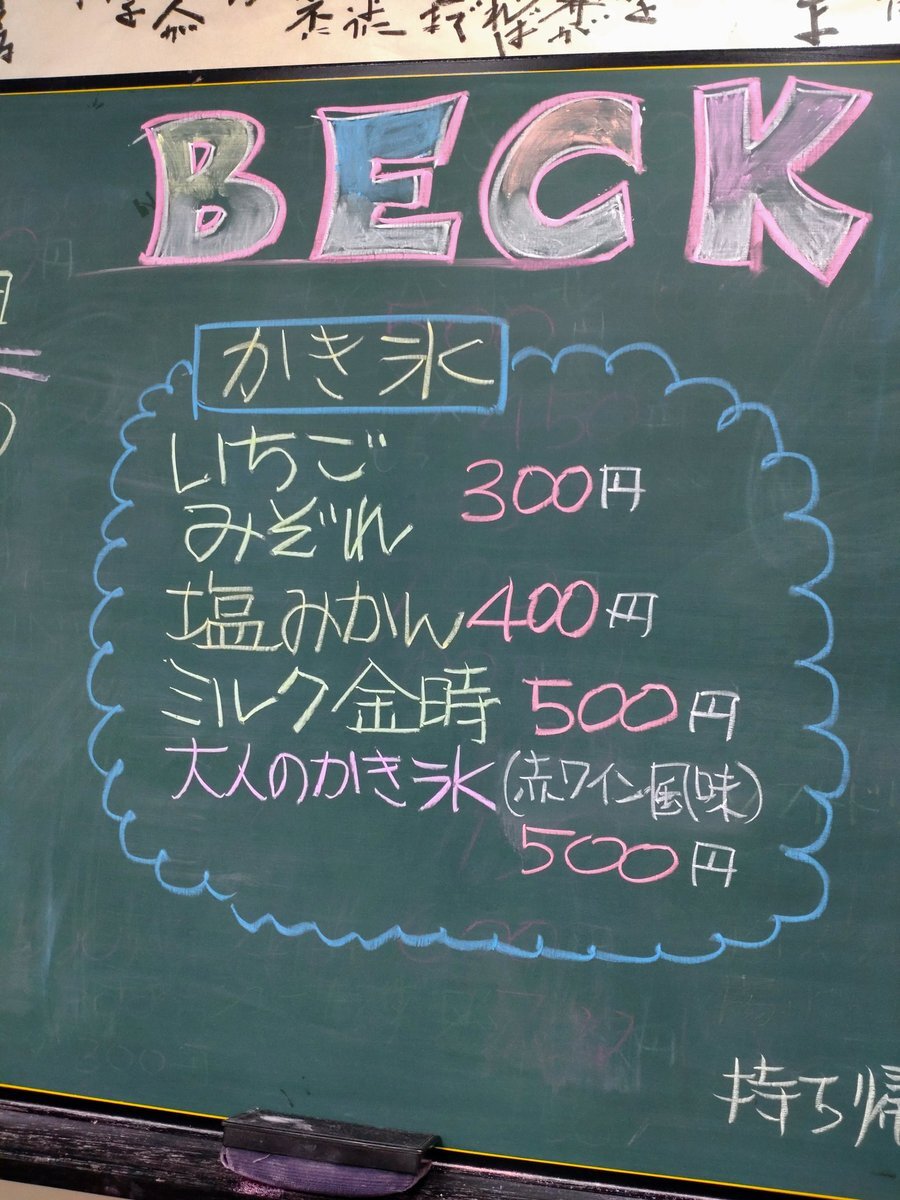 BECK
かき氷
いちご
みぞれ 300円
塩みかん 400円
ミルク金時 500円
大人のかき氷(赤ワイン風味)
500円
持ち帰